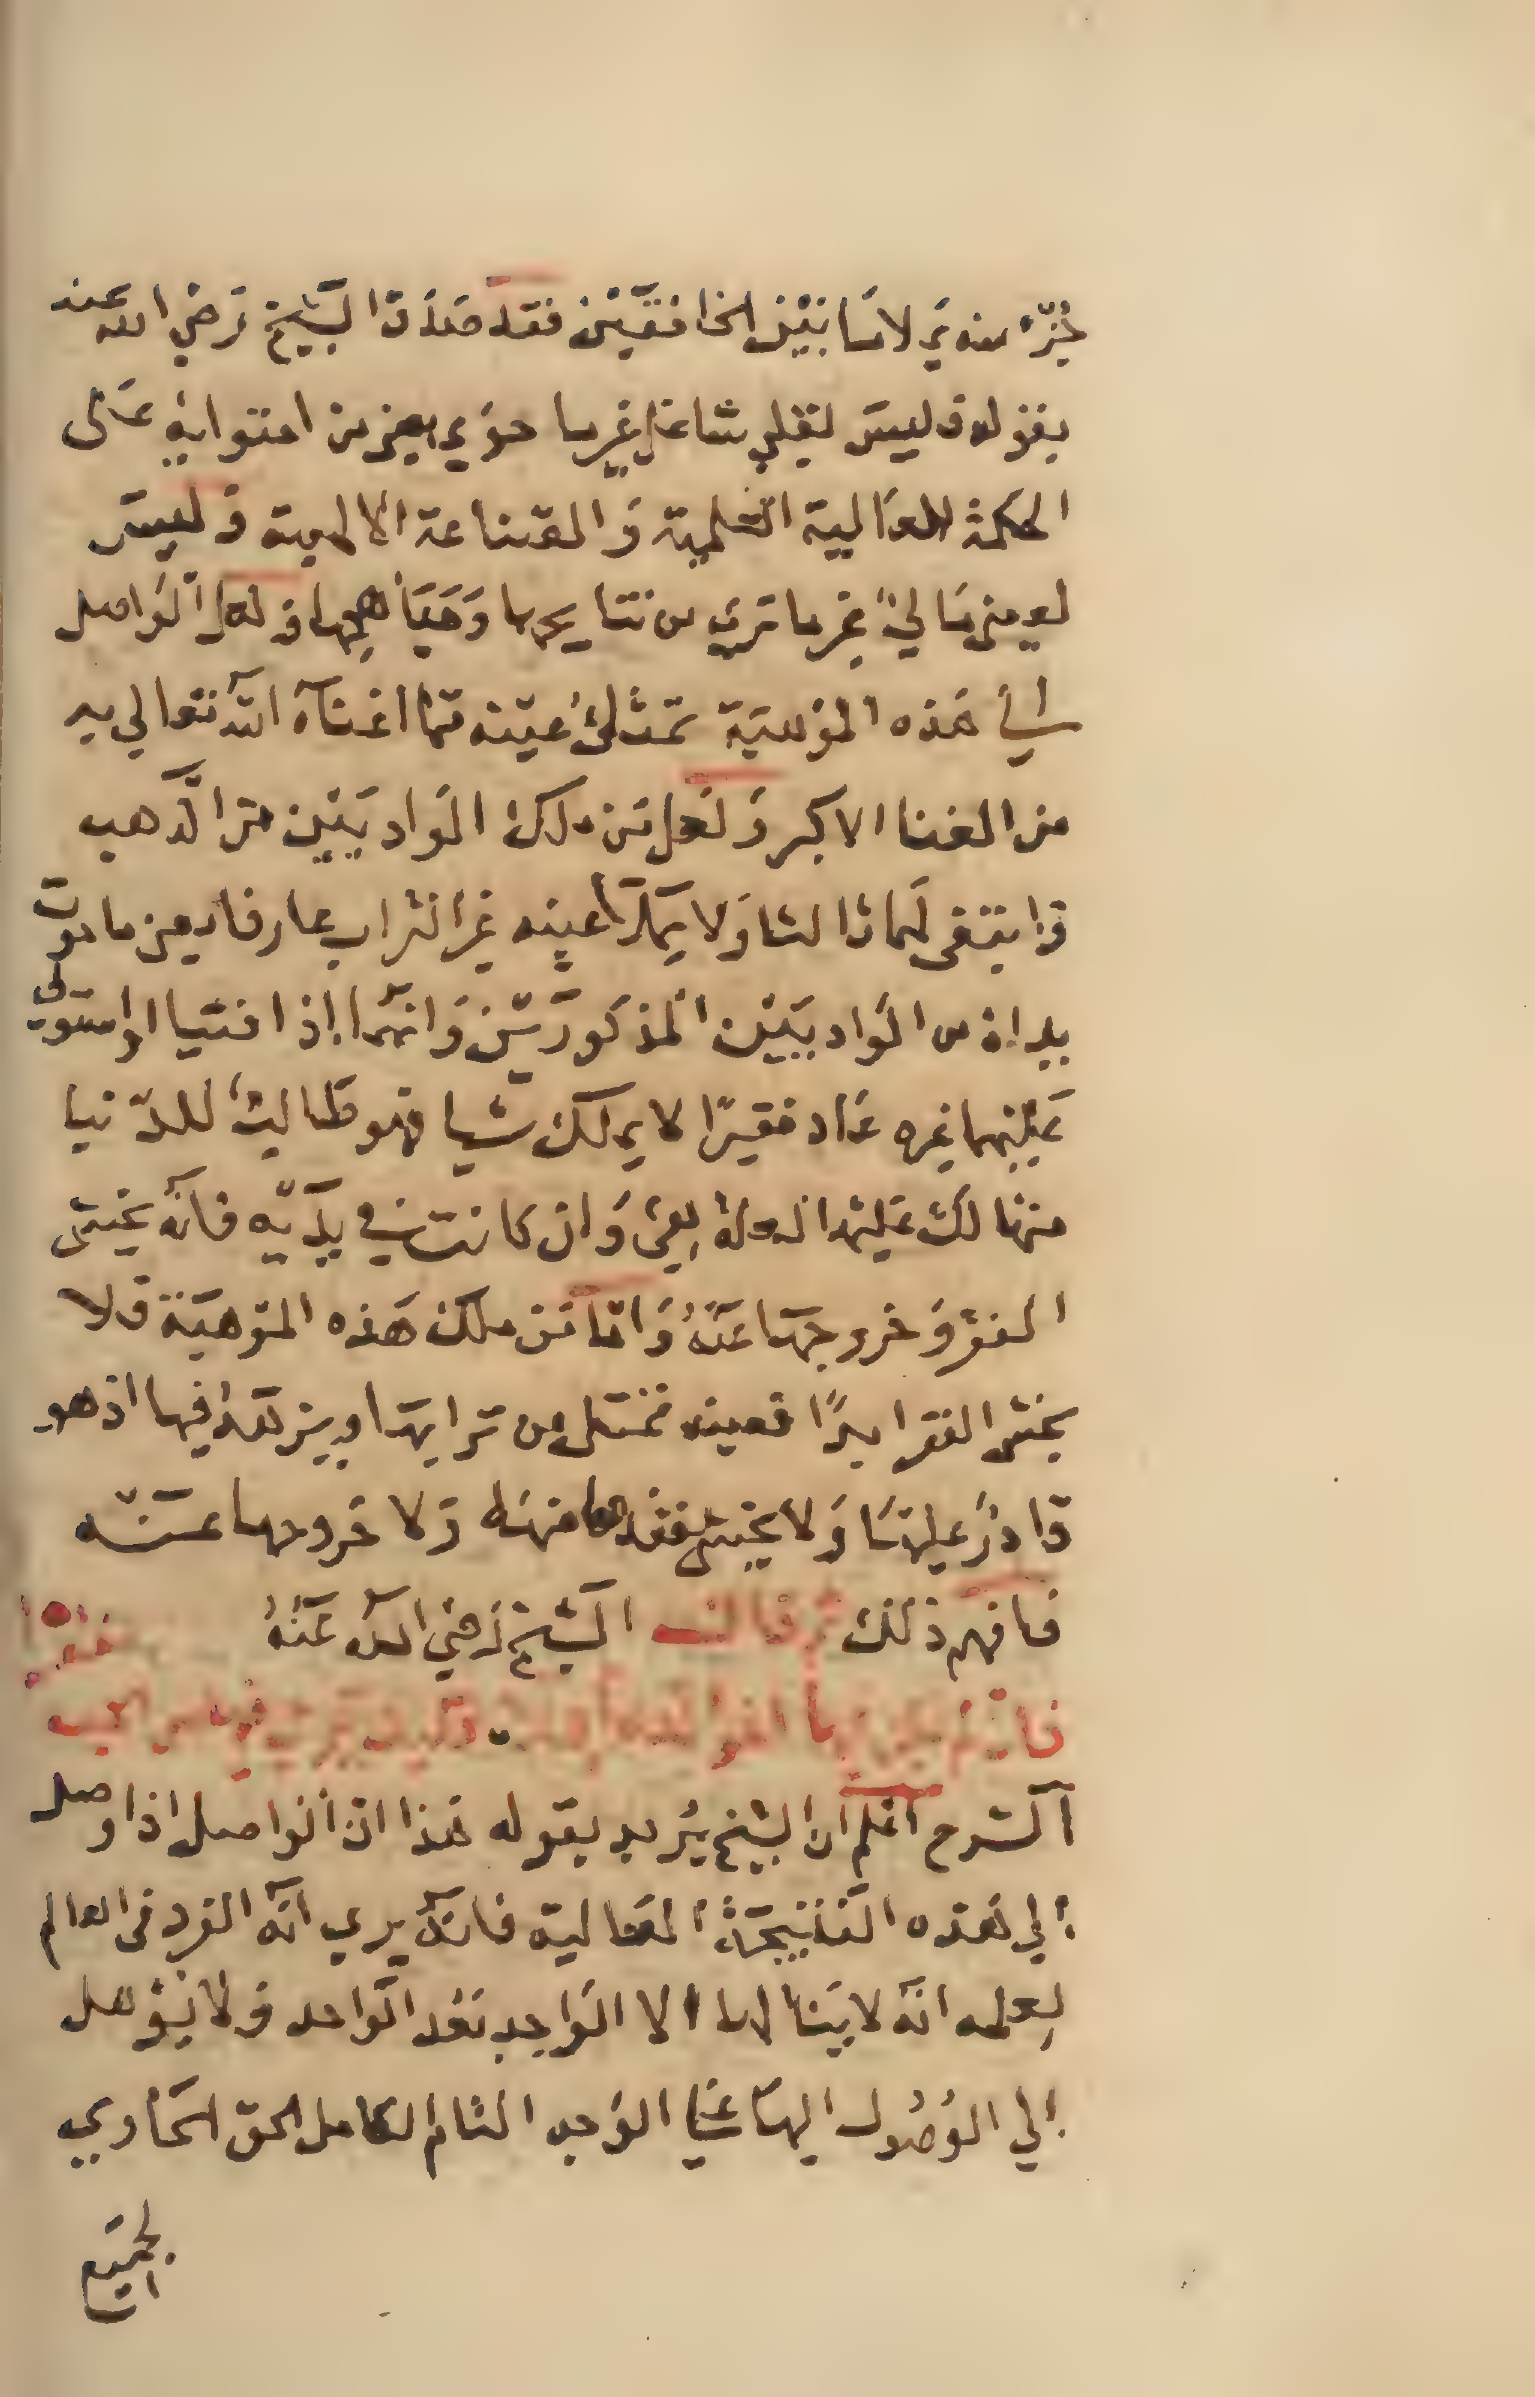 جزء منه يملا ما بين الخافقين فقد صدق الشيخ رضي الله عنه
بقوله وليس لقلبي شاغل غير ما حوى يعني من احتوايه على
الحكمة العالية العلمية والصناعة الالهية وليس
لعيني مالئ غير ما ترى من نتايجها وعجايبها ولعل الواصل
الي هذه الموهبة تمتلئ عينه مما اغناه الله تعالي به
من الغنا الاكبر ولعل من ملك الواديين من الذهب
وابتغى لهما ثالثا ولا يملا عينه غير التراب عارفا يعني ما حوت
يداه من الواديين المذكورين وانهما اذا فنيا او استولى
عليهما غيره عاد فقيرا لا يملك شيا فهو طالب للدنيا
متهالك عليها وان كانت في يديه فانه يخشى
الفقر وخروجها عنه واما من ملك هذه الموهبة فلا
يخشى الفقر ابدا فعينه تمتلى من ترابها ويزهد فيها اذ هو
قادر عليها ولا يخشى فقدها منه ولا خروجها عنه
فافهم ذلك ثم قال الشيخ رضي الله عنه
الشرح اعلم ان الشيخ يريد بقوله هذا ان الواصل اذا وصل
الي هذه النتيجة العالية فانه يري انه الفرد في العالم
لعلمه انه لا ينالها الا الواحد بعد الواحد ولا يؤهل
الي الوصول اليها الا الواحد التام الكامل الحق الحاوي
لجميع